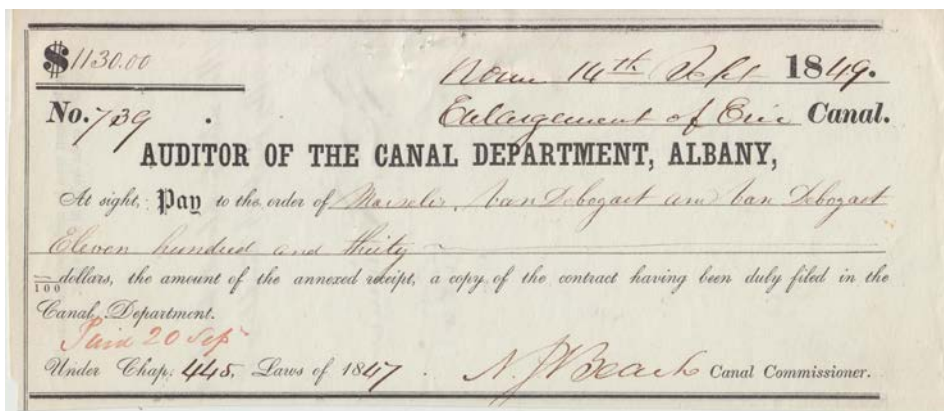 $1130.00
Rome 14th Sept 1849.
No. 739
Enlargement of Erie Canal.
AUDITOR OF THE CANAL DEPARTMENT, ALBANY,
At sight, Pay to the order of Marselis, Van Debogart and Van Debogart
Eleven hundred and thirty
/100 dollars, the amount of the annexed receipt, a copy of the contract having been duly filed in the
Canal Department.
Paid 20 Sep
Under Chap. 445, Laws of 1847. N. J. Beach Canal Commissioner.